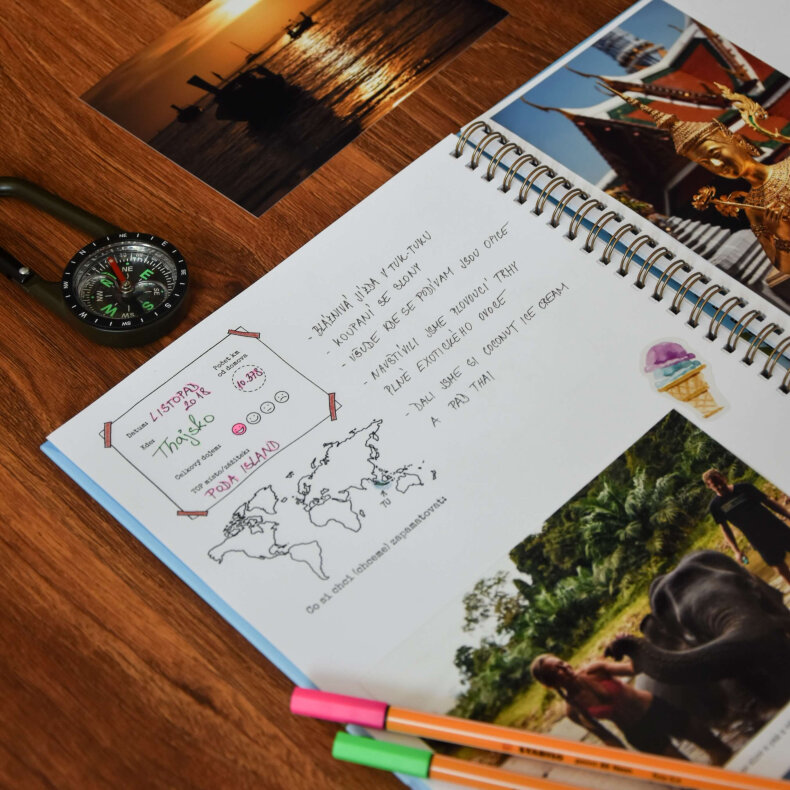 Datum: LISTOPAD 2018
Počet km od domova
10.378
Kde: Thajsko
Celkový dojem:
TOP místo/zážitek:
PODA ISLAND
- BLÁZNIVÁ JÍZDA V TUK-TUKU
- KOUPÁNÍ SE SLONY
- VŠUDE KDE SE PODÍVÁM JSOU OPICE
- NAVŠTÍVILI JSME PLOVOUCÍ TRHY
PLNÉ EXOTICKÉHO OVOCE
- DALI JSME SI COCONUT ICE CREAM
A PAD THAI
TU
Co si chci (chceme) zapamatovat:
N
NE
E
SE
S
SW
W
NW
STABILO